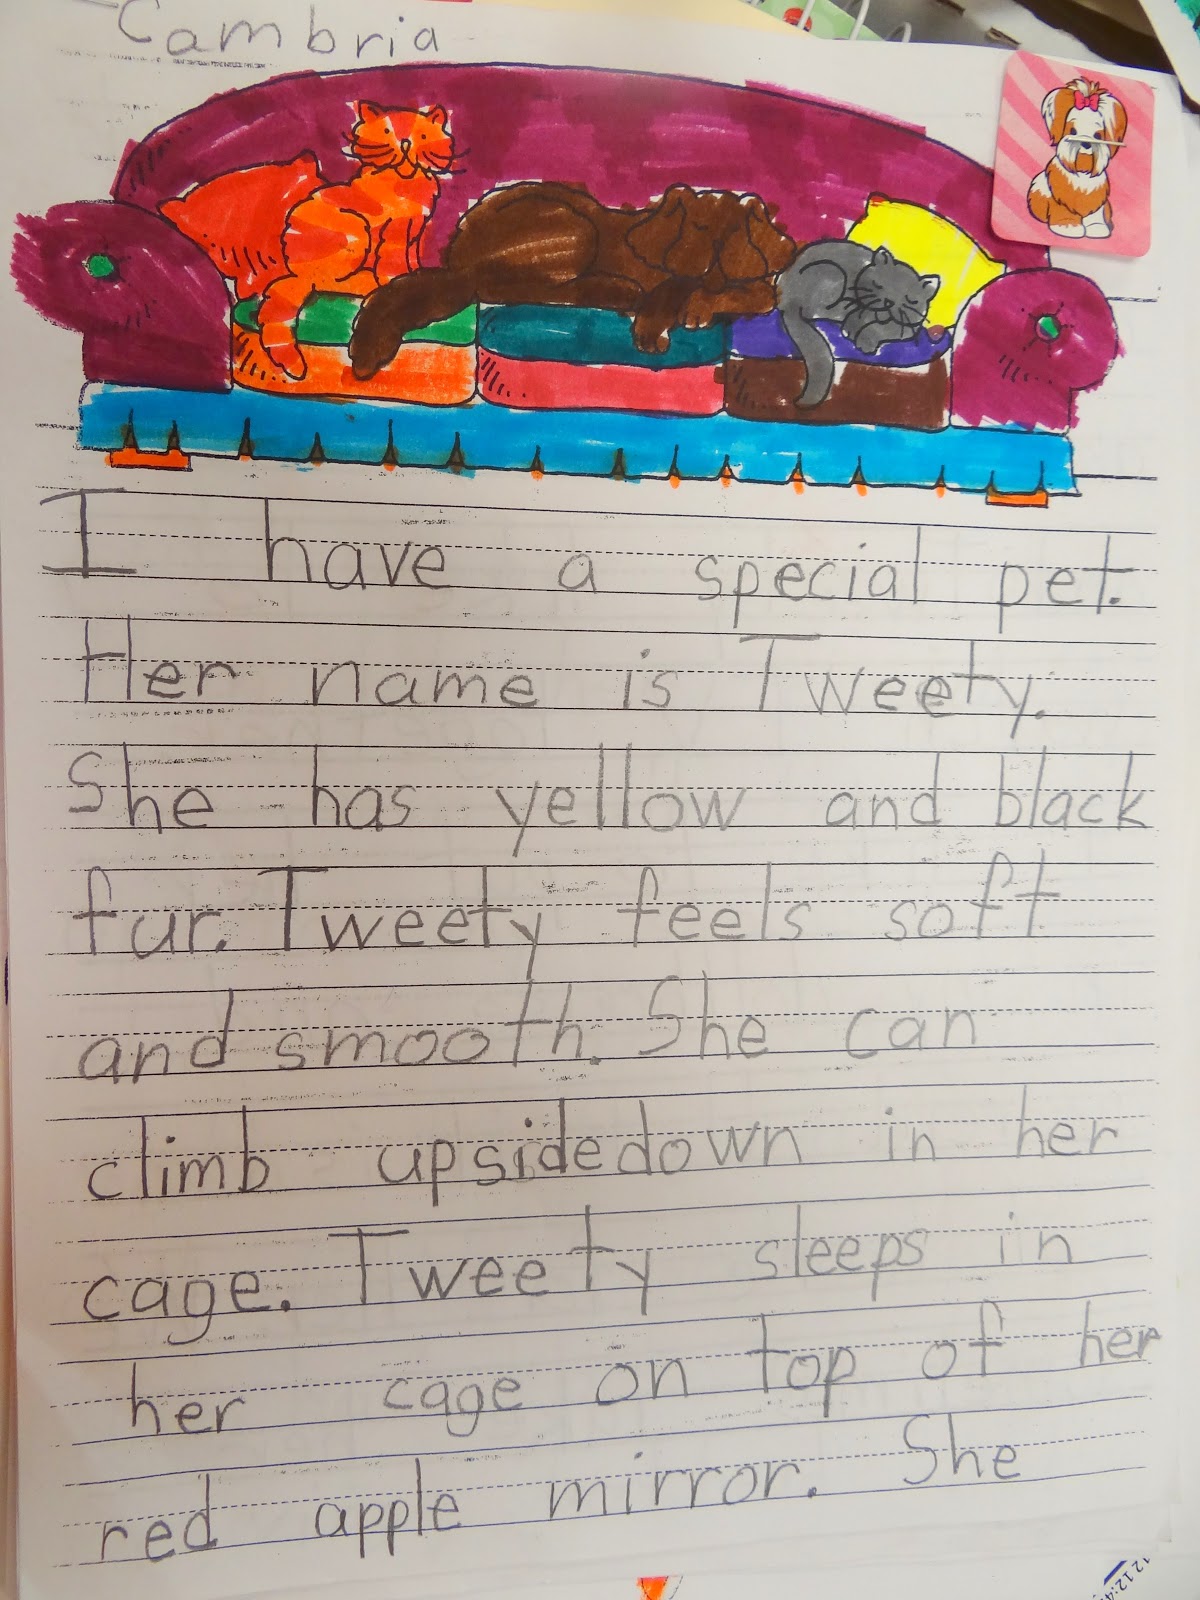 Cambria
I have a special pet.
Her name is Tweety.
She has yellow and black
fur. Tweety feels soft
and smooth. She can
climb upsidedown in her
cage. Tweety sleeps in
her cage on top of her
red apple mirror. She